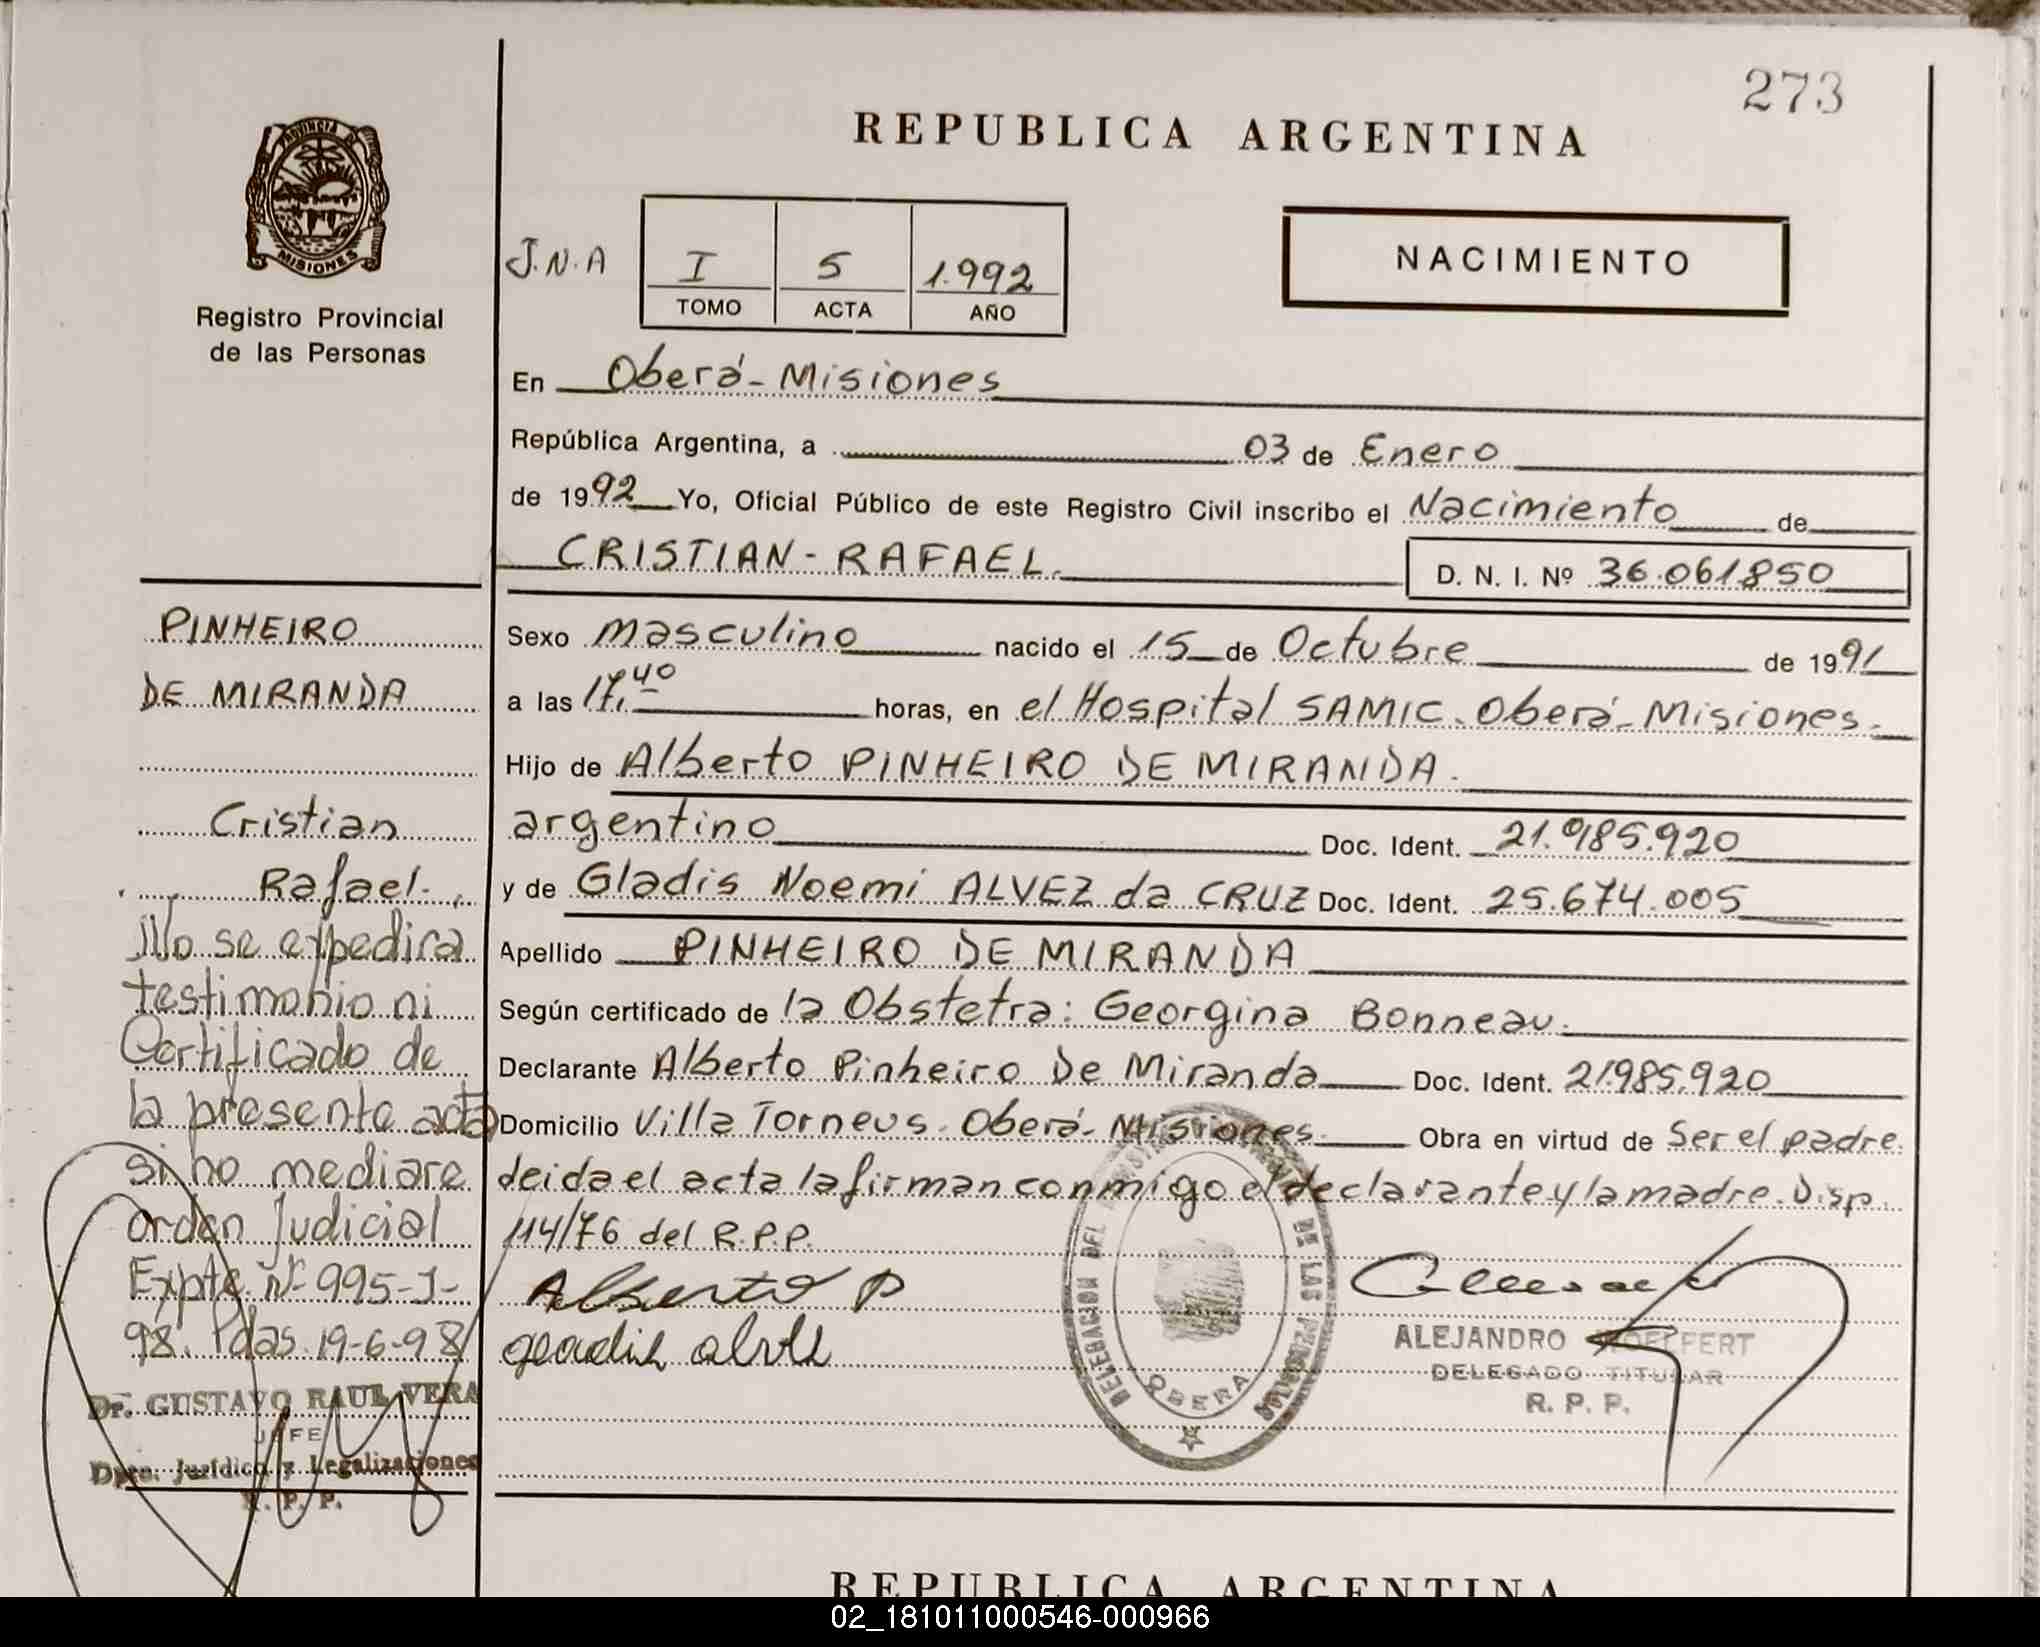 273
REPUBLICA ARGENTINA
PROVINCIA DE
MISIONES
Registro Provincial
de las Personas
J.N.A
I 5 1.992
TOMO ACTA AÑO
NACIMIENTO
En Oberá - Misiones
República Argentina, a 03 de Enero
de 1992 Yo, Oficial Público de este Registro Civil inscribo el Nacimiento de
CRISTIAN - RAFAEL.
D. N. I. Nº 36.061850
Sexo masculino nacido el 15 de Octubre de 1991
a las 17,40 horas, en el Hospital SAMIC. Oberá - Misiones.
Hijo de Alberto PINHEIRO DE MIRANDA.
argentino Doc. Ident. 21.985.920
y de Gladis Noemi ALVEZ da CRUZ Doc. Ident. 25.674.005
Apellido PINHEIRO DE MIRANDA
Según certificado de la Obstetra: Georgina Bonneau.
Declarante Alberto Pinheiro De Miranda Doc. Ident. 21985.920
Domicilio Villa Torneus. Oberá - Misiones Obra en virtud de Ser el padre.
Leida el acta la firman conmigo el declarante y la madre. Disp.
114/76 del R.P.P.
Alberto P
DELEGACION DEL DE LAS PERSONAS
OBERA
ALEJANDRO
DELEGADO TITULAR
R. P. P.
PINHEIRO
DE MIRANDA
Cristian
Rafael.
No se expedira
testimonio ni
Certificado de
la presente acta
si no mediare
orden Judicial
Expte Nº 995-J-
98. Pdas. 19-6-98
Dr. GUSTAVO RAUL VERA
JEFE
Dpto. Jurídico y Legalizaciones
R. P. P.
REPUBLICA ARGENTINA
02_181011000546-000966